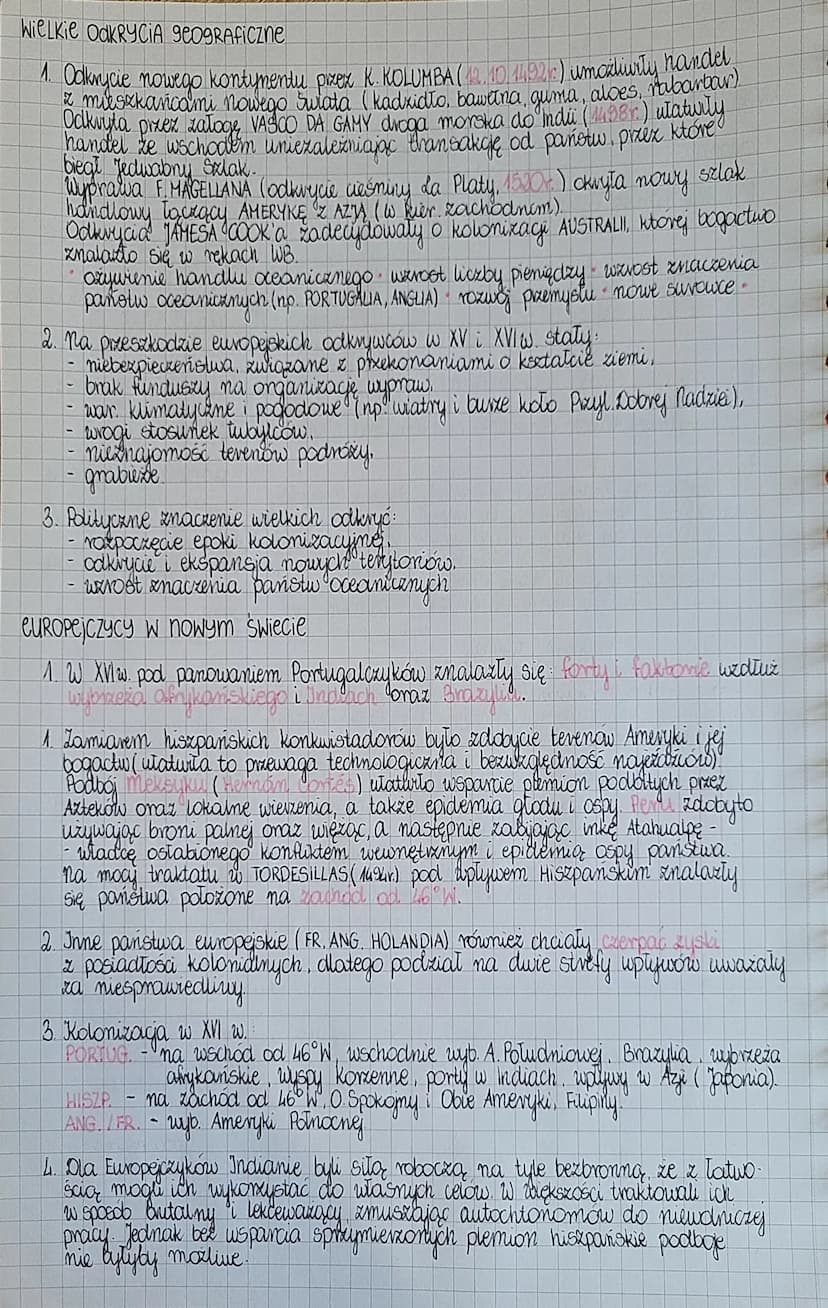 WIELKIE ODKRYCIA GEOGRAFICZNE
1. Odkrycie nowego kontynentu przez K. KOLUMBA (12.10.1492r.) umożliwiły handel
z mieszkańcami nowego świata (kadzidło, bawełna, guma, aloes, rabarbar)
Odkryta przez załogę VASCO DA GAMY droga morska do Indii (1498r.) ułatwiły
handel ze wschodem uniezależniając transakcję od państw, przez które
biegł Jedwabny Szlak.
Wyprawa F. MAGELLANA (odkrycie cieśniny La Platy, 1520r.) okryła nowy szlak
handlowy łączący AMERYKĘ z AZJĄ (w kier. zachodnim)
Odkrycia JAMESA COOK'a zadecydowały o kolonizacji AUSTRALII, której bogactwo
znalazło się w rękach WB.
• ożywienie handlu oceanicznego • wzrost liczby pieniędzy • wzrost znaczenia
państw oceanicznych (np. PORTUGALIA, ANGLIA) • rozwój przemysłu • nowe surowce •
2. Na przeszkodzie europejskich odkrywców w XV i XVI w. stały:
- niebezpieczeństwa, związane z przekonaniami o kształcie ziemi,
- brak funduszy na organizację wypraw,
- war. klimatyczne i pogodowe (np. wiatry i burze koło Przyl. Dobrej Nadziei),
- wrogi stosunek tubylców,
- nieznajomość terenów podróży,
- grabieże.
3. Polityczne znaczenie wielkich odkryć:
- rozpoczęcie epoki kolonizacyjnej,
- odkrycie i ekspansja nowych terytoriów,
- wzrost znaczenia państw oceanicznych
EUROPEJCZYCY W NOWYM ŚWIECIE
1. W XVI w. pod panowaniem Portugalczyków znalazły się: forty i faktorie wzdłuż
wybrzeża afrykańskiego i Indiach oraz Brazylia.
1. Zamiarem hiszpańskich konkwistadorów było zdobycie terenów Ameryki i jej
bogactw (ułatwiła to przewaga technologiczna i bezwzględność najeźdźców).
Podbój Meksyku (Hernán Cortés) ułatwiło wsparcie plemion podbitych przez
Azteków oraz lokalne wierzenia, a także epidemia głodu i ospy. Peru zdobyto
używając broni palnej oraz więżąc, a następnie zabijając inkę Atahualpę -
- władcę osłabionego konfliktem wewnętrznym i epidemią ospy państwa.
Na mocy traktatu w TORDESILLAS (1494r) pod wpływem Hiszpańskim znalazły
się państwa położone na zachód od 46°W.
2. Inne państwa europejskie (FR, ANG, HOLANDIA) również chciały czerpać zyski
z posiadłości kolonialnych, dlatego podział na dwie strefy wpływów uważały
za niesprawiedliwy.
3. Kolonizacja w XVI w.:
PORTUG. - na wschód od 46°W, wschodnie wyb. A. Południowej, Brazylia, wybrzeża
afrykańskie, Wyspy Korzenne, porty w Indiach, wpływy w Azji (Japonia).
HISZP. - na zachód od 46°W, O. Spokojny i Obie Ameryki, Filipiny.
ANG. / FR. - wyb. Ameryki Północnej
4. Dla Europejczyków Indianie byli siłą roboczą na tyle bezbronną, że z łatwo-
ścią mogli ich wykorzystać do własnych celów. W większości traktowali ich
w sposób brutalny i lekceważący, zmuszając autochtonomów do niewolniczej
pracy. Jednak bez wsparcia sprzymierzonych plemion hiszpańskie podboje
nie byłyby możliwe.